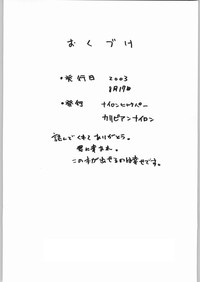 おくづけ
・発行日 2003
8月17日
・発行 ナイロンヒャクパー
カリビアンナイロン
読んでくれてありがとう。
この本が出せて幸せです。